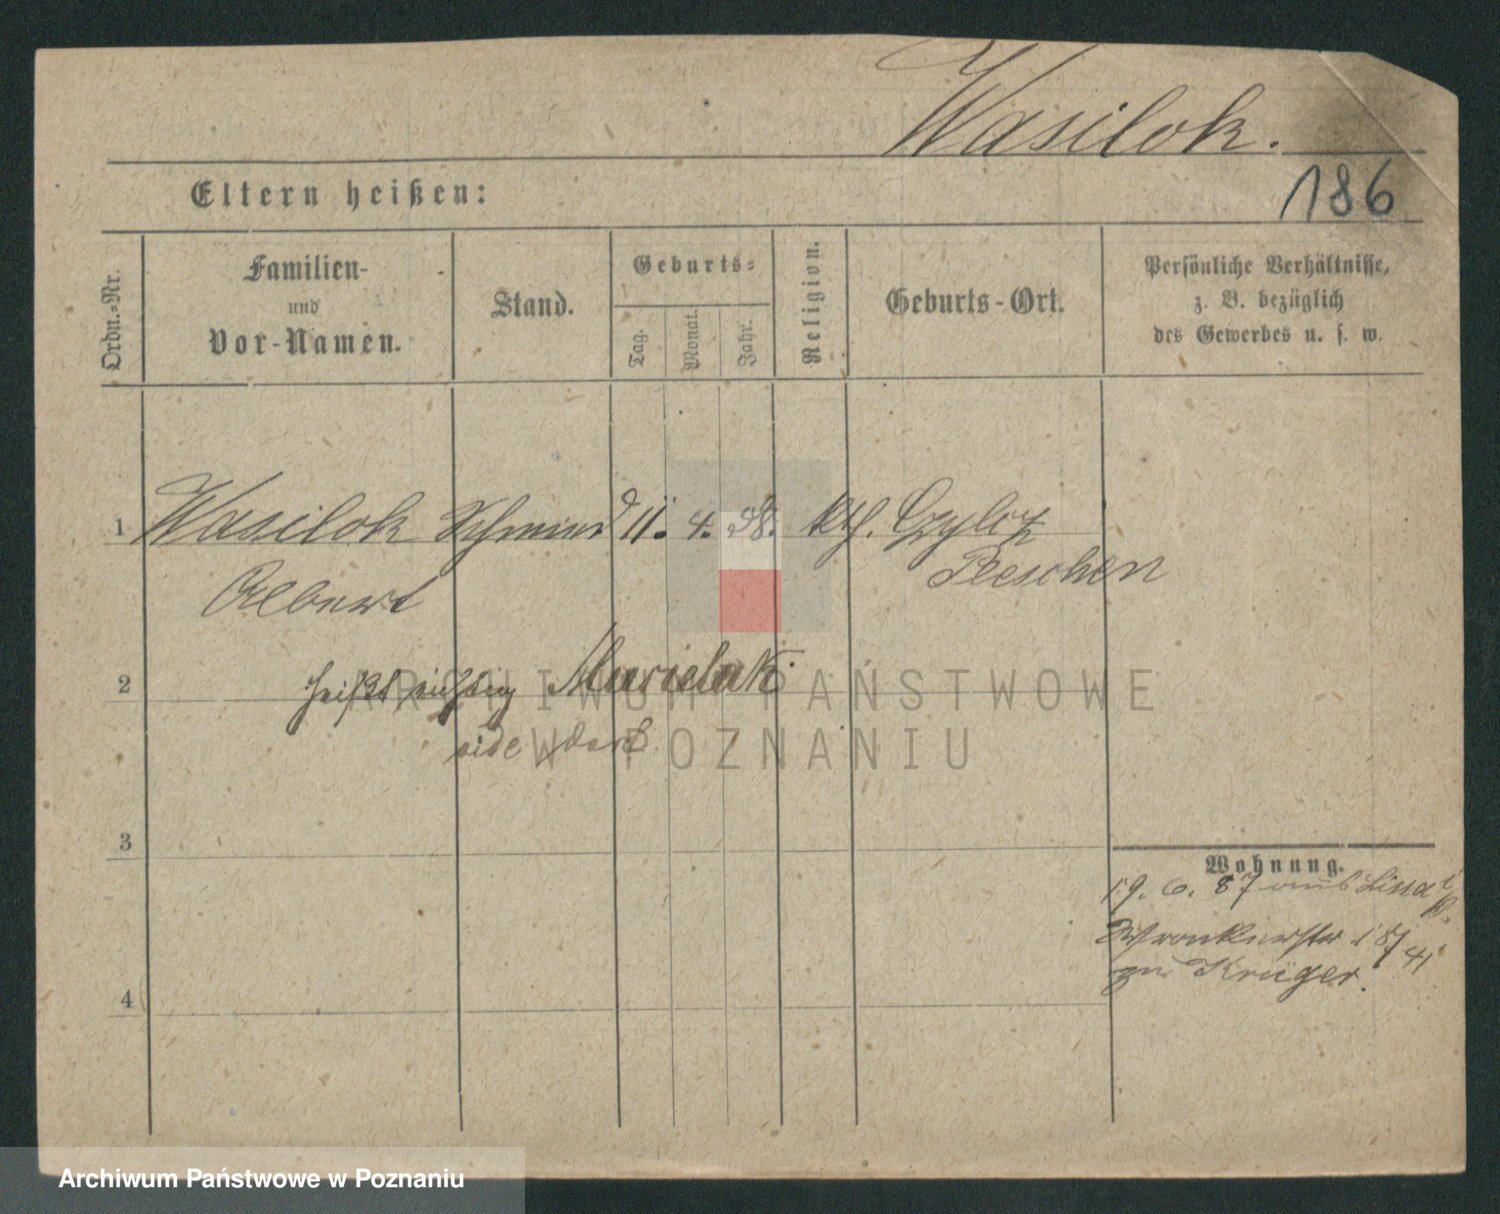 Wasilok.
186
Eltern heißen:
Ordn.-Nr.
Familien-
und
Vor-Namen.
Stand.
Geburts-
Tag.
Monat.
Jahr.
Religion.
Geburts-Ort.
Persönliche Verhältnisse,
z. B. bezüglich
des Gewerbes u. s. w.
1 Wasilok Schmied 11. 4. 58. kth.
Albert Pleschen
2 heißt richtig
vide dort
3
Wohnung.
19. 6. 87 aus Lissa
Wronkerstr
zu Krüger.
4
ARCHIWUM PAŃSTWOWE
W POZNANIU
Archiwum Państwowe w Poznaniu